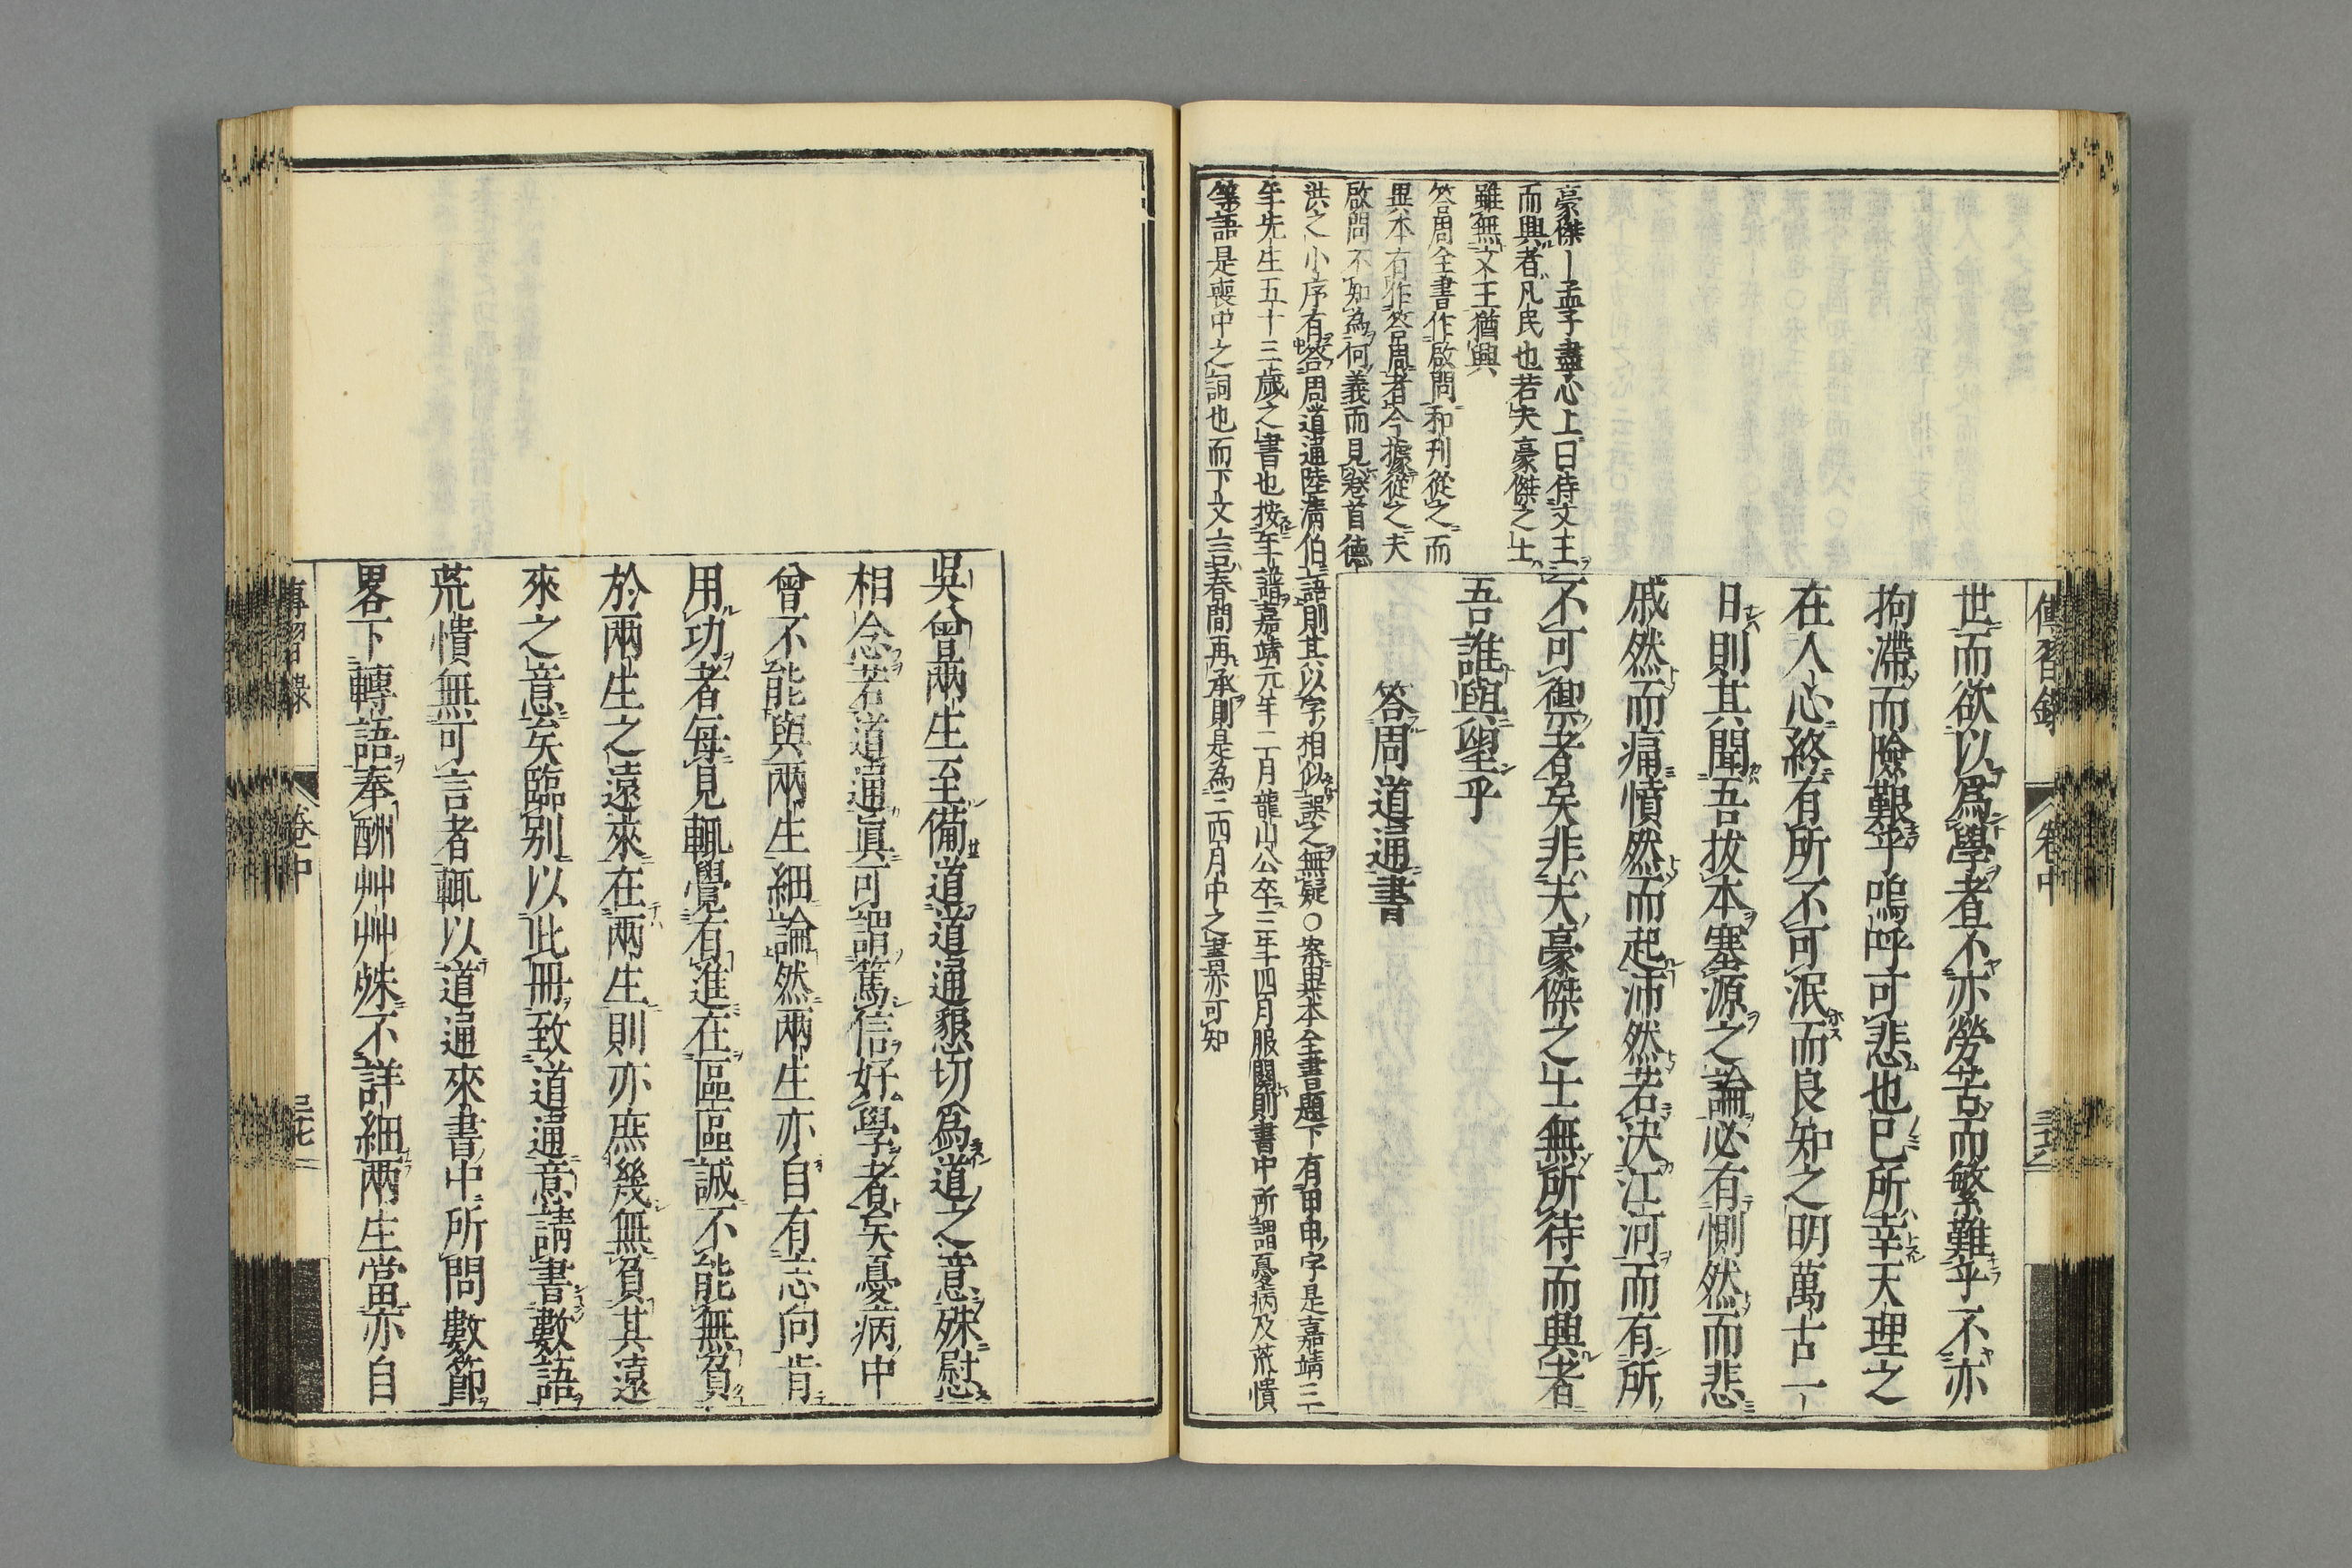 傳習錄 卷中
世而欲以爲學者不亦勞苦而繁難乎不亦
拘滯而險艱乎嗚呼可悲也已所幸天理之
在人心終有所不可泯而良知之明萬古一
日則其聞吾拔本塞源之論必有惻然而悲
戚然而痛憤然而起沛然若決江河而有所
不可禦者矣非夫豪傑之士無所待而興者
吾誰與望乎
答周道通書
豪傑〡孟子盡心上曰待文王
而興者凡民也若夫豪傑之士
雖無文王猶興
答周全書作啟問和刊從之而
異本有作答周者今據從之夫
啟問不知為何義而見卷首德
洪之小序有答周道通陸淸伯語則其以字相似誤之無疑○案異本全書題下有甲申字是嘉靖三
年先生五十三歲之書也按年譜嘉靖元年二月龍山公卒三年四月服闋則書中所謂憂病及荒憒
等語是喪中之詞也而下文言春間再承則是為三四月中之書亦可知
吳曾兩生至備道道通懇切爲道之意殊慰
相念若道通眞可謂篤信好學者矣憂病中
曾不能與兩生細論然兩生亦自有志向肯
用功者每見輒覺有進在區區誠不能無負
於兩生之遠來在兩生則亦庶幾無負其遠
來之意矣臨别以此冊致道通意請書數語
荒憒無可言者輒以道通來書中所問數節
畧下轉語奉酬艸艸殊不詳細兩生當亦自
傳習錄 卷中